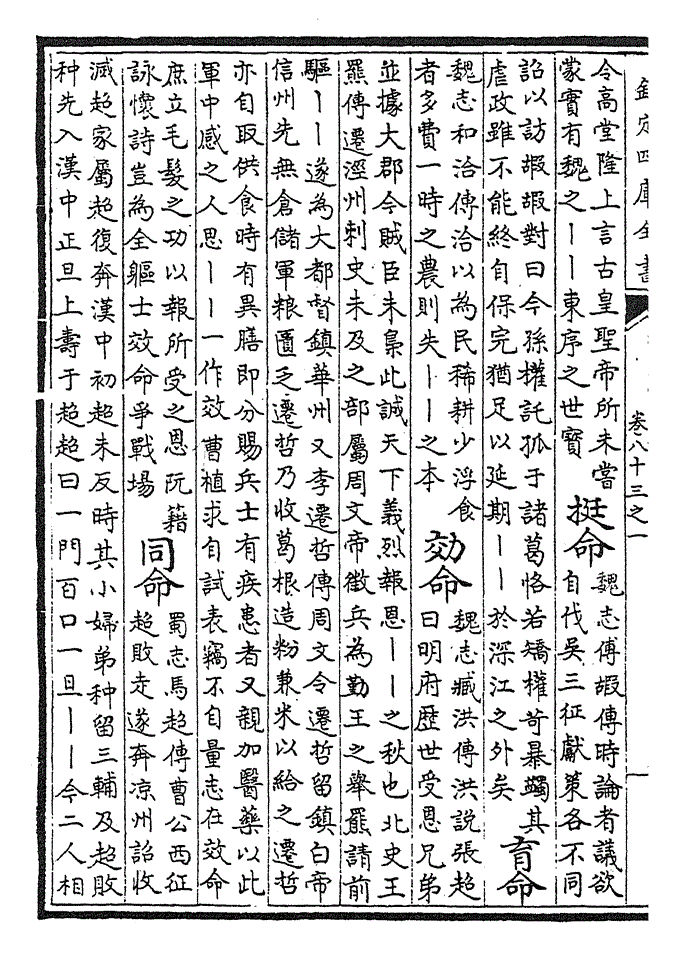 欽定四庫全書
卷八十三之一
令高堂隆上言古皇聖帝所未嘗
蒙實有魏之丨丨東序之世寳
挺命
魏志傅嘏傳時論者議欲
自伐吳三征獻策各不同
詔以訪嘏嘏對曰今孫權託孤于諸葛恪若矯權苛暴蠲其
虐政雖不能終自保完猶足以延期丨丨於深江之外矣
育命
魏志和洽傳洽以為民稀耕少浮食
者多費一時之農則失丨丨之本
効命
魏志臧洪傳洪說張超
曰明府歴世受恩兄弟
並據大郡今賊臣未梟此誠天下義烈報恩丨丨之秋也北史王
羆傳遷涇州刺史未及之部屬周文帝徵兵為勤王之舉羆請前
驅丨丨遂為大都督鎮華州又李遷哲傳周文令遷哲留鎮白帝
信州先無倉儲軍粮匱乏遷哲乃收葛根造粉兼米以給之遷哲
亦自取供食時有異膳即分賜兵士有疾患者又親加醫藥以此
軍中感之人思丨丨一作效曹植求自試表竊不自量志在效命
庶立毛髮之功以報所受之恩阮籍
詠懷詩豈為全軀士效命爭戰場
同命
蜀志馬超傳曹公西征
超敗走遂奔凉州詔收
滅超家屬超復奔漢中初超未反時其小婦弟种留三輔及超敗
种先入漢中正旦上壽于超超曰一門百口一旦丨丨今二人相